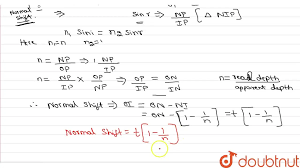 Normal =
Shift. ⇒
Sin r ⇒ NP/IP [ Δ NIP ]
n₁ Sin i = n₂ Sin r
Here n₁ = n n₂ = 1
n = NP/OP ÷ NP/IP
n = NP/IP × OP/NP ⇒ OP/IP = ON/IN
n = real depth / apparent depth
∴ Normal Shift ⇒ OI = ON - NI
= ON - [ 1 - 1/n ] = t [ 1 - 1/n ]
Normal Shift = t [ 1 - 1/n ]
doubtnut